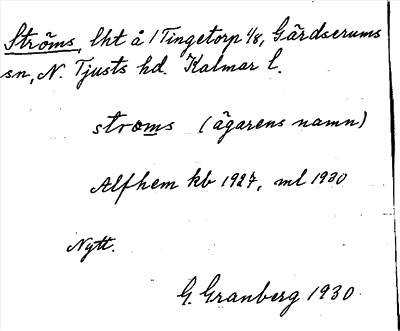 Ströms, lht å 1 Tingetorp 1/8, Gärdserums
sn, N. Tjusts hd. Kalmar l.
stroms (ägarens namn)
Alfhem kb 1927, ml 1930
Nytt.
G. Granberg 1930.